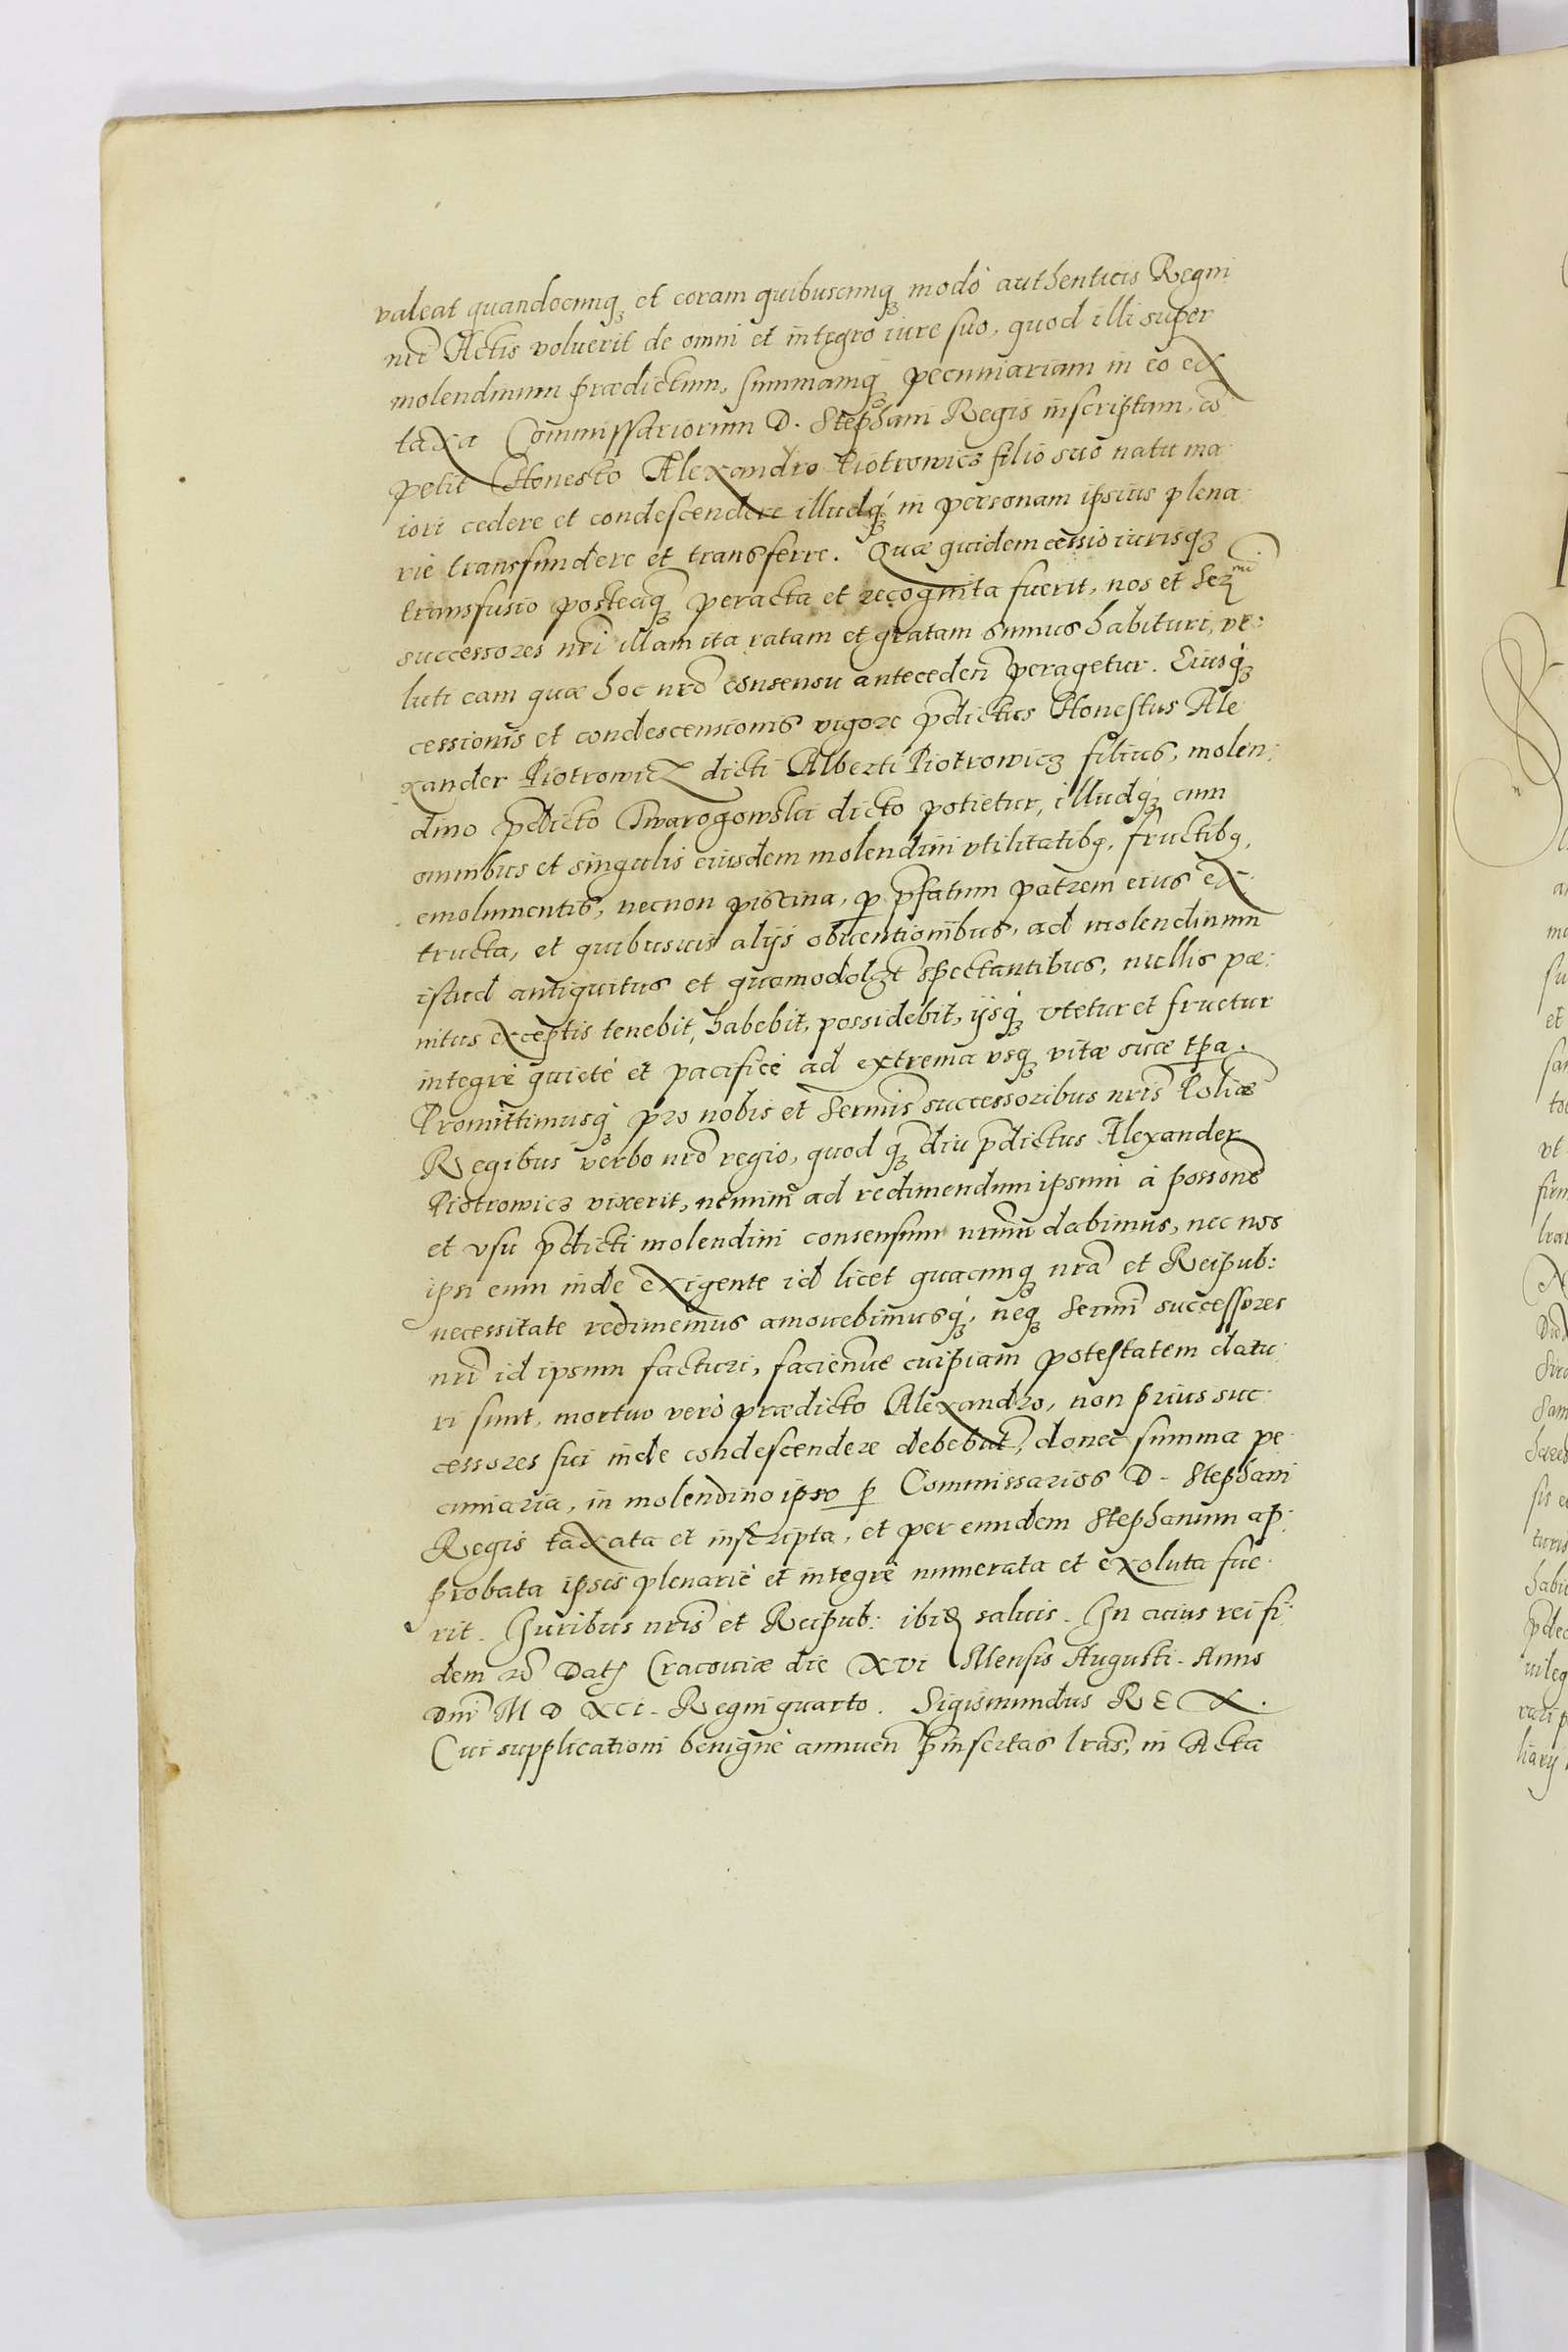 valeat quandocunq; et coram quibuscunq; modò authenticis Regni
nrĩ Actis voluerit de omni et integro iure suo, quod illi super
molendinum prædictum, summamq́; pecuniariam in eo ex
taxa Commissariorum D. Stephani Regis inscriptam, co:
petit Honesto Alexandro Piotrowicz filio suo natu ma
iori cedere et condescendere illudq́; in personam ipsius plena
rie transfundere et transferre. Quæ quidem cessio iurisq;
transfusio posteaq̃; peracta et recognita fuerit, nos et Ser.mi
successores nrĩ illam ita ratam et gratam sumus habituri, ve:
luti eam quæ hoc nrõ consensu anteceden̄ peragetur. Eiusq́;
cessionis et condescensionis vigore p̄dictus Honestus Ale
xander Piotrowicz dicti Alberti Piotrowicz filius, molen:
dino p̄dicto Twarogowski dicto potietur, illudq́; cum
omnibus et singulis eiusdem molendini vtilitatibq, fructibq,
emolumentis, necnon piscina, ꝑ p̄fatum patrem eius ex
tructa, et quibusuis alijs obuentionibus, ad molendinum
istud antiquitus et quomodolzt spectantibus, nullis pæ:
nitus exceptis tenebit, habebit, possidebit, ijsq́; vtetur et fruetur
integrè quietè et pacificè ad extrema vsq; vitæ suæ tp̄a.
Promittimusq́; pro nobis et Sermis̃ successoribus nrĩs Poliæ
Regibus verbo nrõ regio, quod q̃; diu p̄dictus Alexander
Piotrowicz vixerit, nemini ad redimendum ipsum à possone͂
et vsu p̄dicti molendini consensum nrm̃ dabimus, nec nos
ipsi eum inde exigente id licet quacunq; nrã et Reipub:
necessitate redimemus amouebimusq́;, neq; Sermĩ successores
nrĩ id ipsum facturi, faciendiue cuipiam potestatem datu
ri sunt, mortuo verò prædicto Alexandro, non prius suc:
cessores sui inde condescendere debebūt, donec summa pe
cuniaria, in molendino ipso ꝑ Commissarios D. Stephani
Regis taxata et inscripta, et per eundem Stephanum ap:
probata ipsis plenariè et integrè numerata et exoluta fue:
rit. Iuribus nrĩs et Reipub: ibid̃ saluis. In cuius rei fi:
dem 2c̄ Dat; Cracouiæ die XVI Mensis Augusti. Anno
Dni͂ M D XCI. Regni quarto. Sigismundus REX.
Cui supplicationi benignè annuen̄ p̄insertas lrãs, in Acta